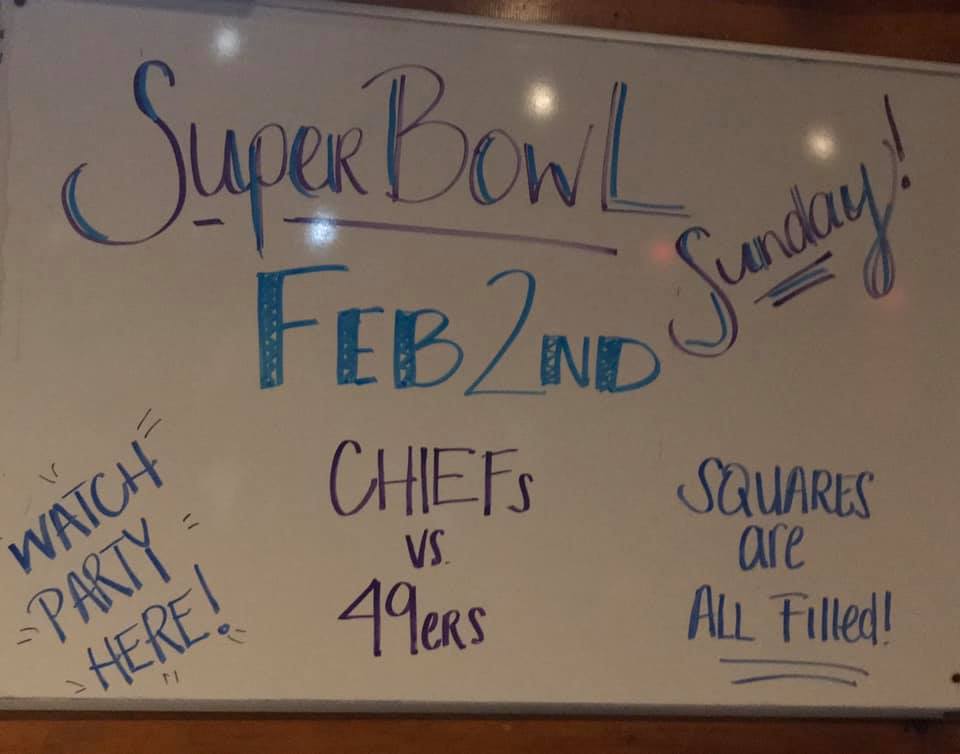 SuperBowl
Sunday!
Feb 2nd
WATCH
PARTY
HERE!
CHIEFs
vs.
49ers
SQUARES
are
ALL Filled!